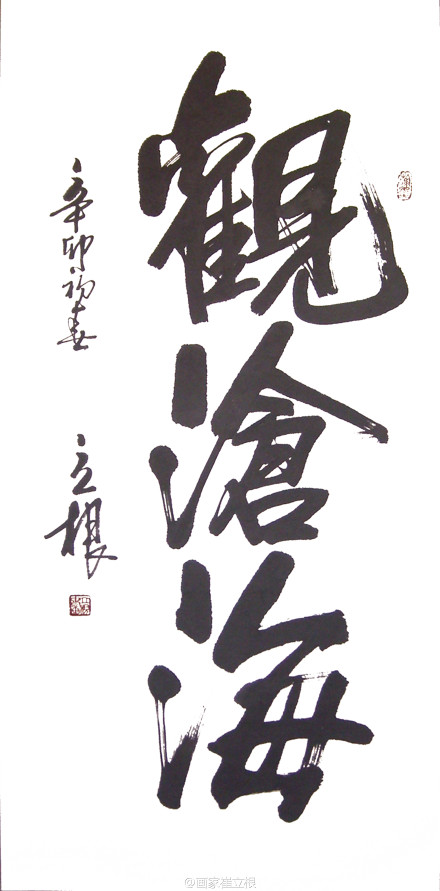 觀滄海
辛卯初春
立根
@画家崔立根